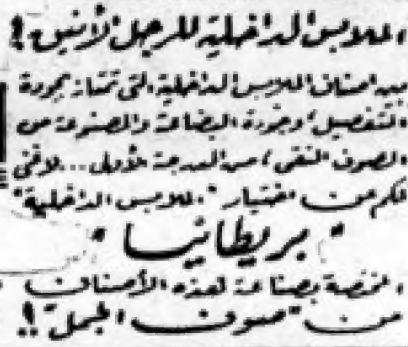 الملابس الداخلية للرجل الأنيق !
من اصناف الملابس الداخلية التى تمتاز بجودة
التفصيل، وجودة البضاعة والمصنوعة من
الصوف النقى، من الدرجة الأولى ... لا غنى
لكم من اختيار "الملابس الداخلية"
" بريطانيا "
المختصة بصناعة لهذه الأصناف
من "صوف الجمل" !!